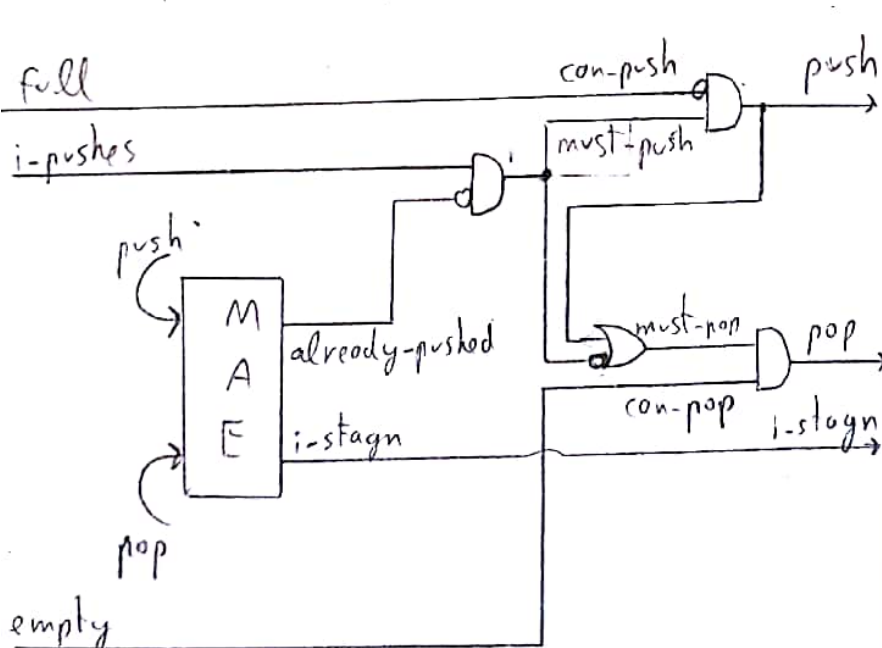 full
con-push
push
i-pushes
must-push
push
M
already-pushed
A
must-pop
pop
E
i-stagn
con-pop
i-stagn
pop
empty